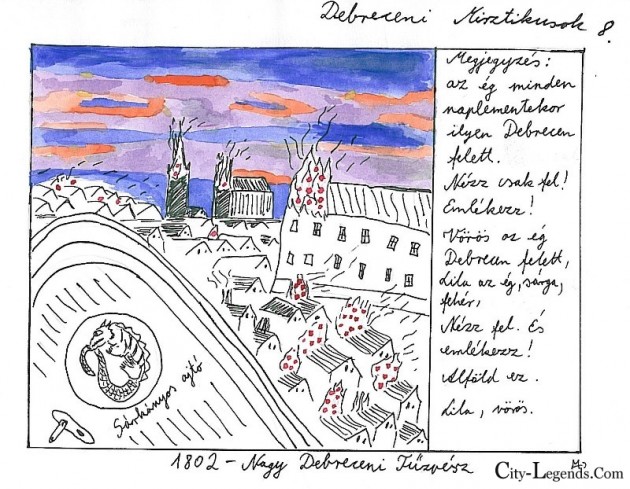 Debreceni Misztikusok 8.
Megjegyzés:
az ég minden
naplementekor
ilyen Debrecen
felett.
Nézz csak fel!
Emlékezz!
Vörös az ég
Debrecen felett,
Lila az ég, sárga,
fehér,
Nézz fel. És
emlékezz!
Alföld ez.
Lila, vörös.
Sárkányos ajtó
1802 - Nagy Debreceni Tűzvész
City-Legends.Com